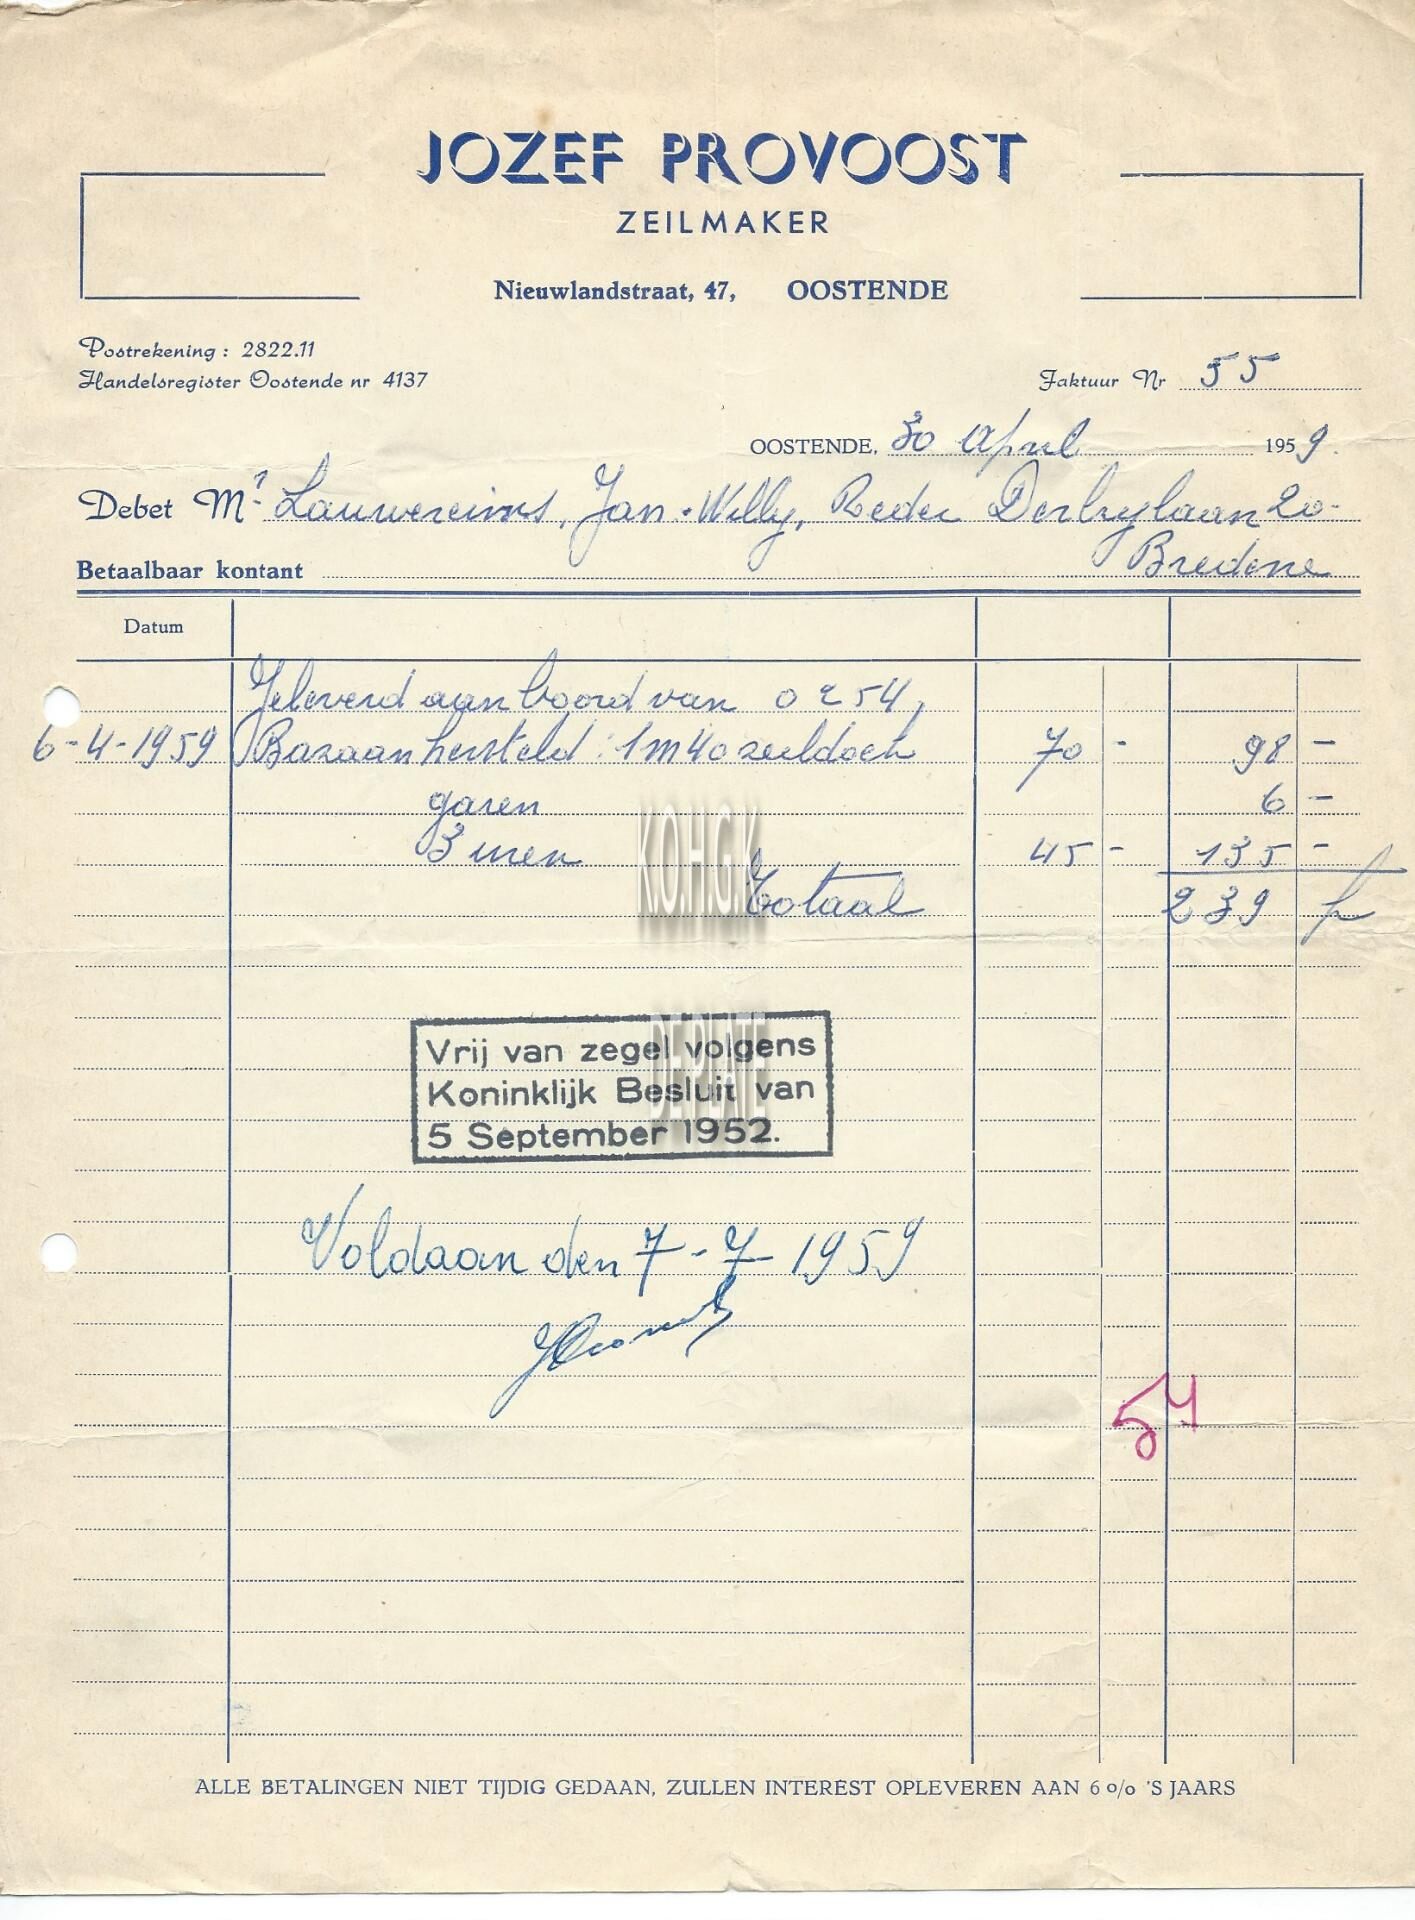 JOZEF PROVOOST
ZEILMAKER
Nieuwlandstraat, 47, OOSTENDE
Postrekening : 2822.11
Handelsregister Oostende nr 4137
Faktuur Nr 55
OOSTENDE, 30 April 1959.
Debet Mr Lauwereins, Jan-Willy, Reder Derbylaan 20-
Bredene
Betaalbaar kontant
Datum
Geleverd aan boord van O 254,
6-4-1959 Bazaan hersteld : 1m40 zeildoek 70 - 98 -
garen 6 -
3 uren 45 - 135 -
Totaal 239 fr
K.O.H.G.K
DE PLATE
Vrij van zegel volgens
Koninklijk Besluit van
5 September 1952.
Voldaan den 7-7-1959
54
ALLE BETALINGEN NIET TIJDIG GEDAAN, ZULLEN INTEREST OPLEVEREN AAN 6 o/o 'S JAARS